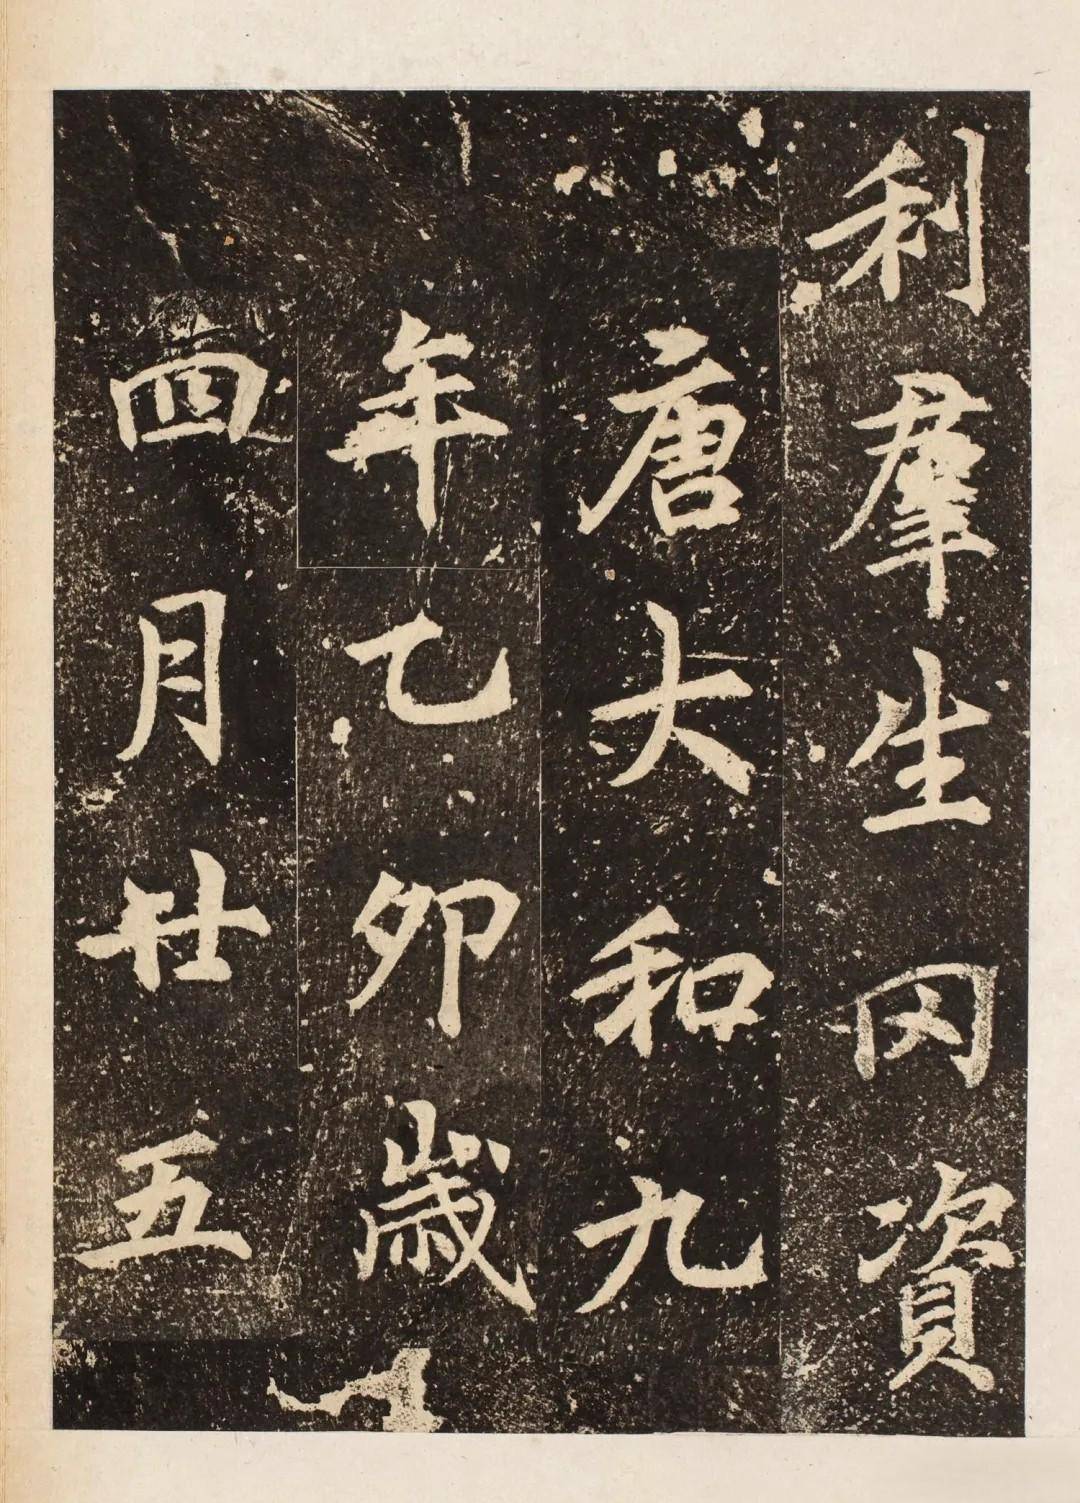 利羣生因資
唐大和九
年乙卯歲
四月廿五